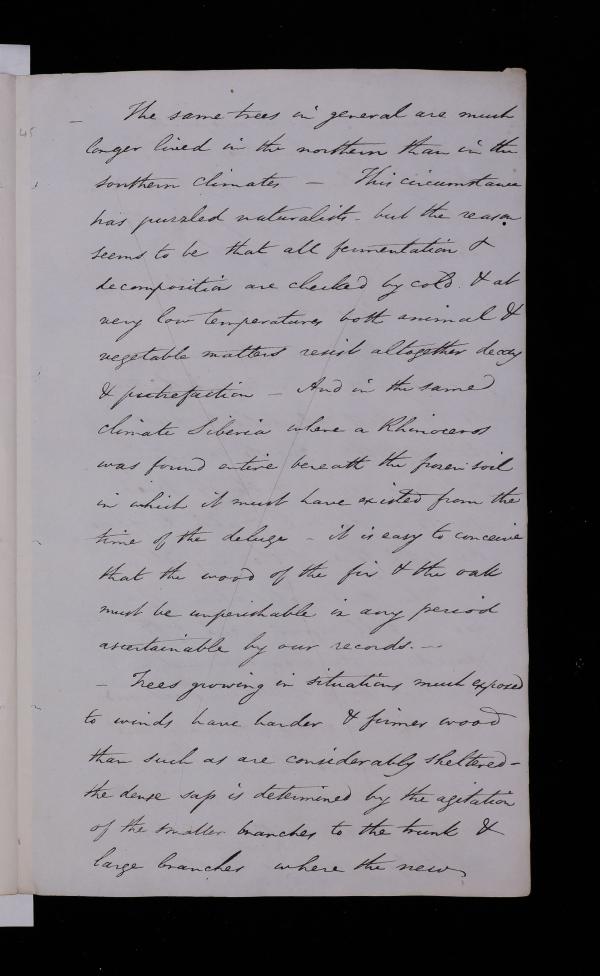 – The same trees in general are much
longer lived in the northern than in the
southern climates – This circumstance
has puzzled naturalists - but the reason
seems to be that all fermentation &
decomposition are checked by cold. & at
very low temperatures both animal &
vegetable matters resist altogether decay
& putrefaction – And in the same
climate Siberia where a Rhinoceros
was found entire beneath the frozen soil
in which it must have existed from the
time of the deluge - it is easy to conceive
that the wood of the fir & the oak
must be imperishable in any period
ascertainable by our records. –
– Trees growing in situations much exposed
to winds have harder & firmer wood
than such as are considerably sheltered -
the dense sap is determined by the agitation
of the smaller branches to the trunk &
large branches where the new